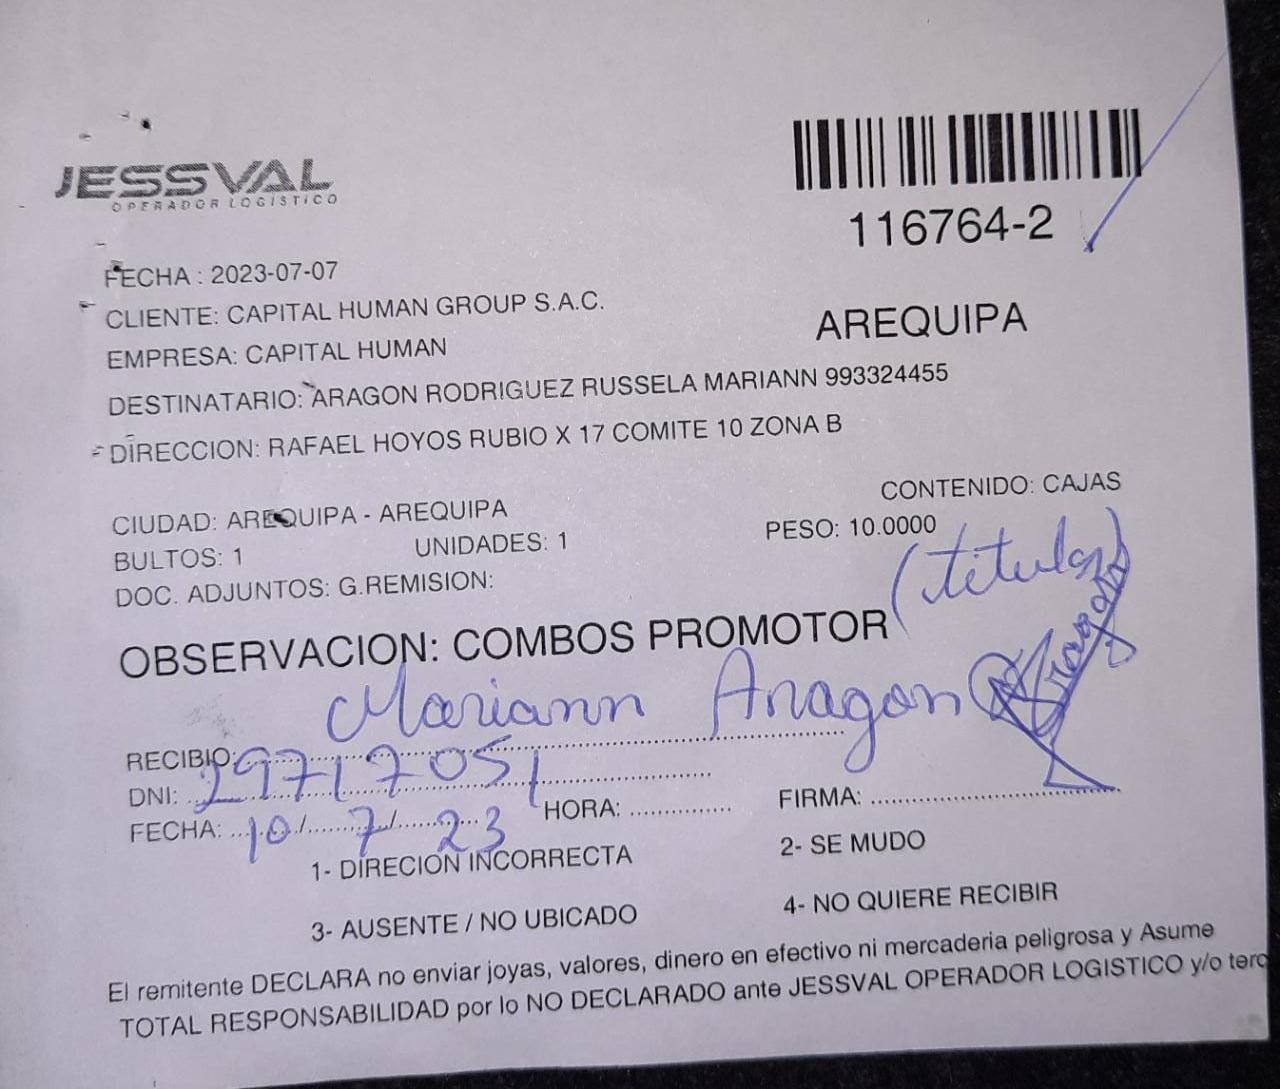 JESSVAL
OPERADOR LOGISTICO
116764-2
FECHA : 2023-07-07
CLIENTE: CAPITAL HUMAN GROUP S.A.C.
EMPRESA: CAPITAL HUMAN
AREQUIPA
DESTINATARIO: ARAGON RODRIGUEZ RUSSELA MARIANN 993324455
DIRECCION: RAFAEL HOYOS RUBIO X 17 COMITE 10 ZONA B
CONTENIDO: CAJAS
CIUDAD: AREQUIPA - AREQUIPA
BULTOS: 1 UNIDADES: 1 PESO: 10.0000
DOC. ADJUNTOS: G.REMISION:
(titular)
OBSERVACION: COMBOS PROMOTOR
RECIBIO: Mariann Aragon
DNI: 29717051
FECHA: 10/7/23 HORA: FIRMA: Aragon
1- DIRECION INCORRECTA 2- SE MUDO
3- AUSENTE / NO UBICADO 4- NO QUIERE RECIBIR
El remitente DECLARA no enviar joyas, valores, dinero en efectivo ni mercaderia peligrosa y Asume
TOTAL RESPONSABILIDAD por lo NO DECLARADO ante JESSVAL OPERADOR LOGISTICO y/o terc